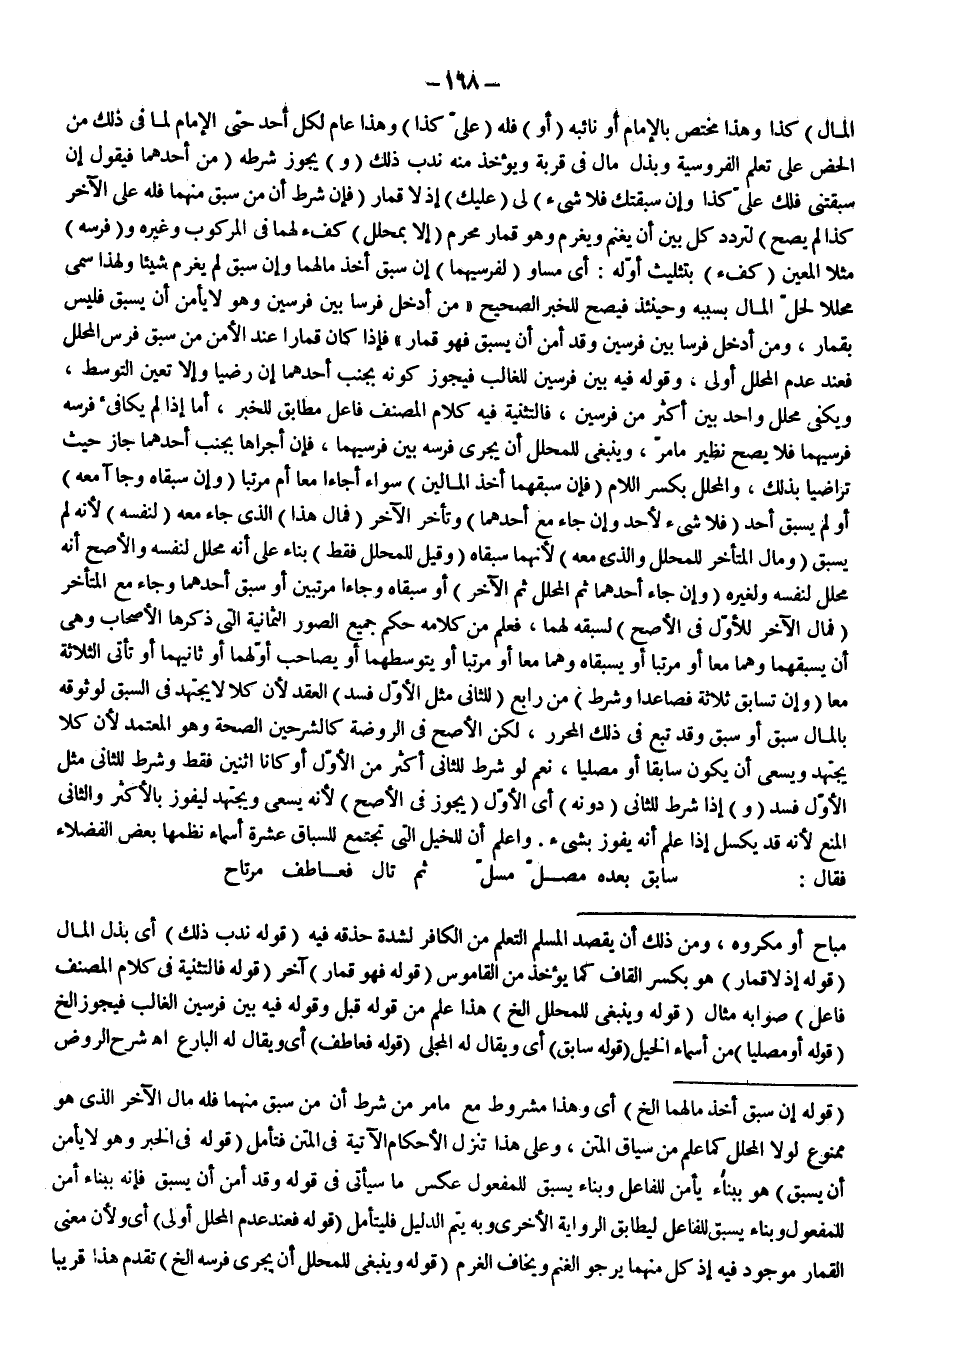 – ١٦٨ –
المـال ) كذا وهذا مختص بالإمام أو نائبه ( أو ) فله ( علىّ كذا ) وهذا عام لكل أحد حتى الإمام لمـا فى ذلك من
الحض على تعلم الفروسية وبذل مال فى قربة ويؤخذ منه ندب ذلك ( و ) يجوز شرطه ( من أحدهما فيقول إن
سبقتنى فلك علىّ كذا وإن سبقتك فلا شىء ) لى ( عليك ) إذ لا قمار ( فإن شرط أن من سبق منهما فله على الآخر
كذا لم يصح ) لتردد كل بين أن يغنم ويغرم وهو قمار محرم ( إلا بمحلل ) كفء لهما فى المركوب وغيره و( فرسه )
مثلا المعين ( كفء ) بتثليث أوّله : أى مساو ( لفرسيهما ) إن سبق أخذ مالهما وإن سبق لم يغرم شيئا ولهذا سمى
محللا لحلّ المـال بسببه وحينئذ فيصح للخبر الصحيح « من أدخل فرسا بين فرسين وهو لايأمن أن يسبق فليس
بقمار ، ومن أدخل فرسا بين فرسين وقد أمن أن يسبق فهو قمار » فإذا كان قمارا عند الأمن من سبق فرس المحلل
فعند عدم المحلل أولى ، وقوله فيه بين فرسين للغالب فيجوز كونه بجنب أحدهما إن رضيا وإلا تعين التوسط ،
ويكفى محلل واحد بين أكثر من فرسين ، فالتثنية فيه كلام المصنف فاعل مطابق للخبر ، أما إذا لم يكافئ فرسه
فرسيهما فلا يصح نظير مامرّ ، وينبغى للمحلل أن يجرى فرسه بين فرسيهما ، فإن أجراها بجنب أحدهما جاز حيث
تراضيا بذلك ، والمحلل بكسر اللام ( فإن سبقهما أخذ المـالين ) سواء أجاءا معا أم مرتبا ( وإن سبقاه وجاآ معه )
أو لم يسبق أحد ( فلا شىء لأحد وإن جاء مع أحدهما ) وتأخر الآخر ( فمال هذا ) الذى جاء معه ( لنفسه ) لأنه لم
يسبق ( ومال المتأخر للمحلل والذى معه ) لأنهما سبقاه ( وقيل للمحلل فقط ) بناء على أنه محلل لنفسه والأصح أنه
محلل لنفسه ولغيره ( وإن جاء أحدهما ثم المحلل ثم الآخر ) أو سبقاه وجاءا مرتبين أو سبق أحدهما وجاء مع المتأخر
( فمال الآخر للأوّل فى الأصح ) لسبقه لهما ، فعلم من كلامه حكم جميع الصور الثمانية التى ذكرها الأصحاب وهى
أن يسبقهما وهما معا أو مرتبا أو يسبقاه وهما معا أو مرتبا أو يتوسطهما أو يصاحب أوّلهما أو ثانيهما أو تأتى الثلاثة
معا ( وإن تسابق ثلاثة فصاعدا وشرط ) من رابع ( للثانى مثل الأوّل فسد ) العقد لأن كلا لايجتهد فى السبق لوثوقه
بالمـال سبق أو سبق وقد تبع فى ذلك المحرر ، لكن الأصح فى الروضة كالشرحين الصحة وهو المعتمد لأن كلا
يجتهد ويسعى أن يكون سابقا أو مصليا ، نعم لو شرط للثانى أكثر من الأوّل أو كانا اثنين فقط وشرط للثانى مثل
الأوّل فسد ( و ) إذا شرط للثانى ( دونه ) أى الأوّل ( يجوز فى الأصح ) لأنه يسعى ويجتهد ليفوز بالأكثر والثانى
المنع لأنه قد يكسل إذا علم أنه يفوز بشىء . واعلم أن للخيل التى تجتمع للسباق عشرة أسماء نظمها بعض الفضلاء
فقال : سابق بعده مصـــلّ مسلّ ثم تال فعـــاطف مرتاح
مباح أو مكروه ، ومن ذلك أن يقصد المسلم التعلم من الكافر لشدة حذقه فيه ( قوله ندب ذلك ) أى بذل المـال
( قوله إذ لاقمار ) هو بكسر القاف كما يؤخذ من القاموس ( قوله فهو قمار ) آخر ( قوله فالتثنية فى كلام المصنف
فاعل ) صوابه مثال ( قوله وينبغى للمحلل الخ ) هذا علم من قوله قبل وقوله فيه بين فرسين الغالب فيجوز الخ
( قوله أو مصليا ) من أسماء الخيل ( قوله سابق ) أى ويقال له المجلى ( قوله فعاطف ) أى ويقال له البارع اه شرح الروض
( قوله إن سبق أخذ مالهما الخ ) أى وهذا مشروط مع مامر من شرط أن من سبق منهما فله مال الآخر الذى هو
ممنوع لولا المحلل كما علم من سياق المتن ، وعلى هذا تنزل الأحكام الآتية فى المتن فتأمل ( قوله فى الخبر وهو لا يأمن
أن يسبق ) هو ببناء يأمن للفاعل وبناء يسبق للمفعول عكس ما سيأتى فى قوله وقد أمن أن يسبق فإنه ببناء أمن
للمفعول وبناء يسبق للفاعل ليطابق الرواية الأخرى وبه يتم الدليل فليتأمل ( قوله فعند عدم المحلل أولى ) أى ولأن معنى
القمار موجود فيه إذ كل منهما يرجو الغنم ويخاف الغرم ( قوله وينبغى للمحلل أن يجرى فرسه الخ ) تقدم هذا قريبا